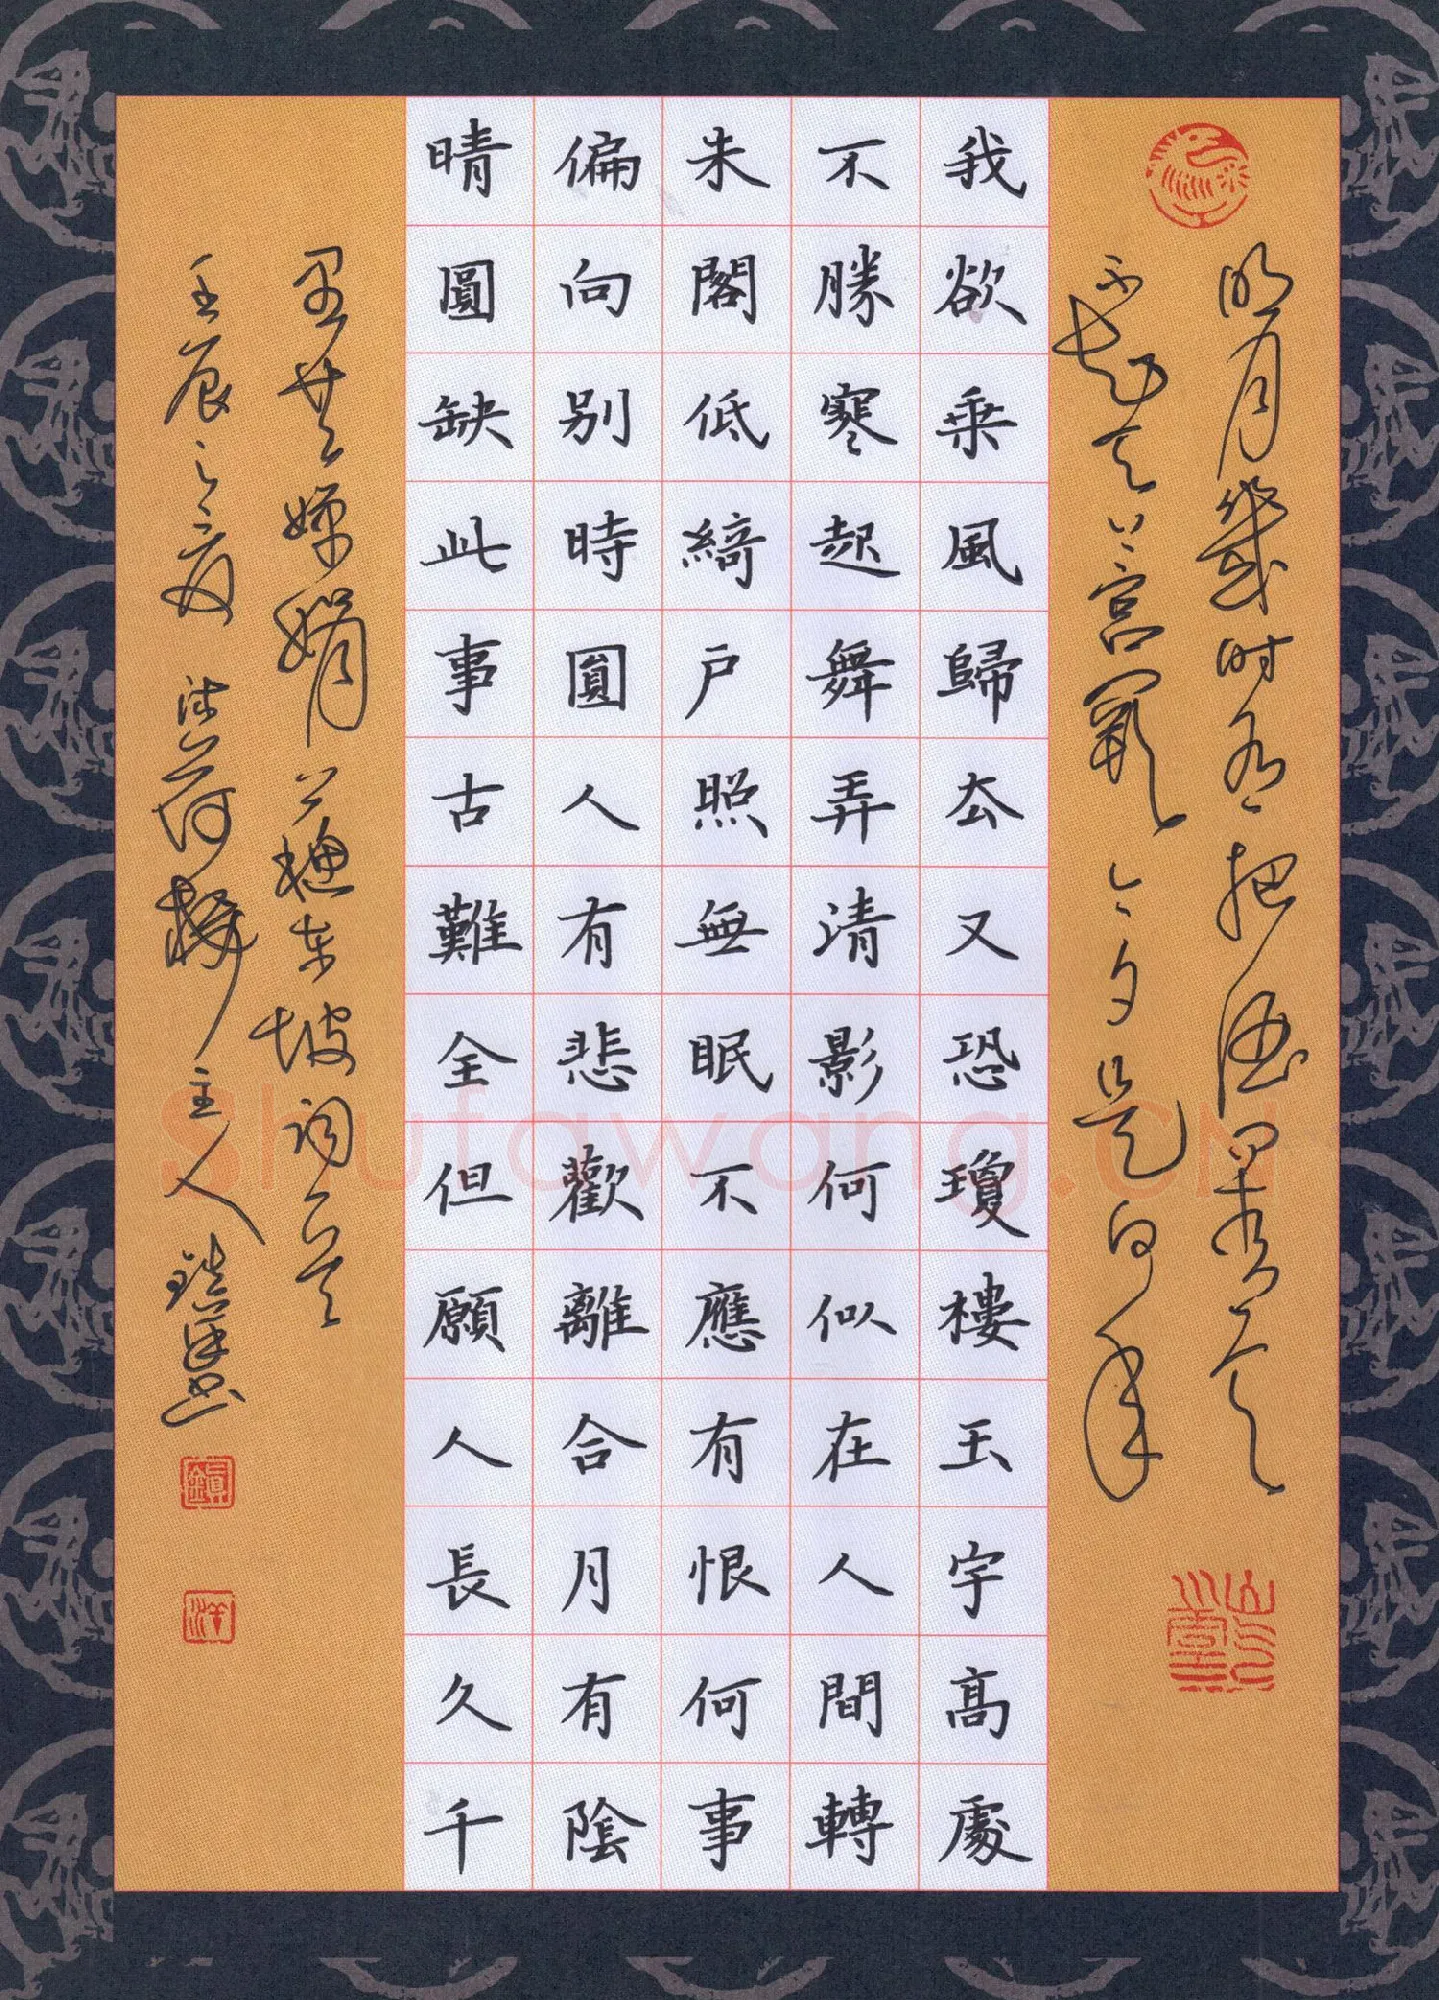 明月幾时有把酒問青天
不知天上宮闕今夕是何年
我欲乗風歸厺又恐瓊樓玉宇高處
不勝寒起舞弄清影何似在人間轉
朱閣低綺戶照無眠不應有恨何事
偏向别時圓人有悲歡離合月有陰
晴圓缺此事古難全但願人長久千
里共嬋娟 蘇東坡詞一首
壬辰之夏 荷樓主人鎮洋書
鎮
洋
Shufawang.CN